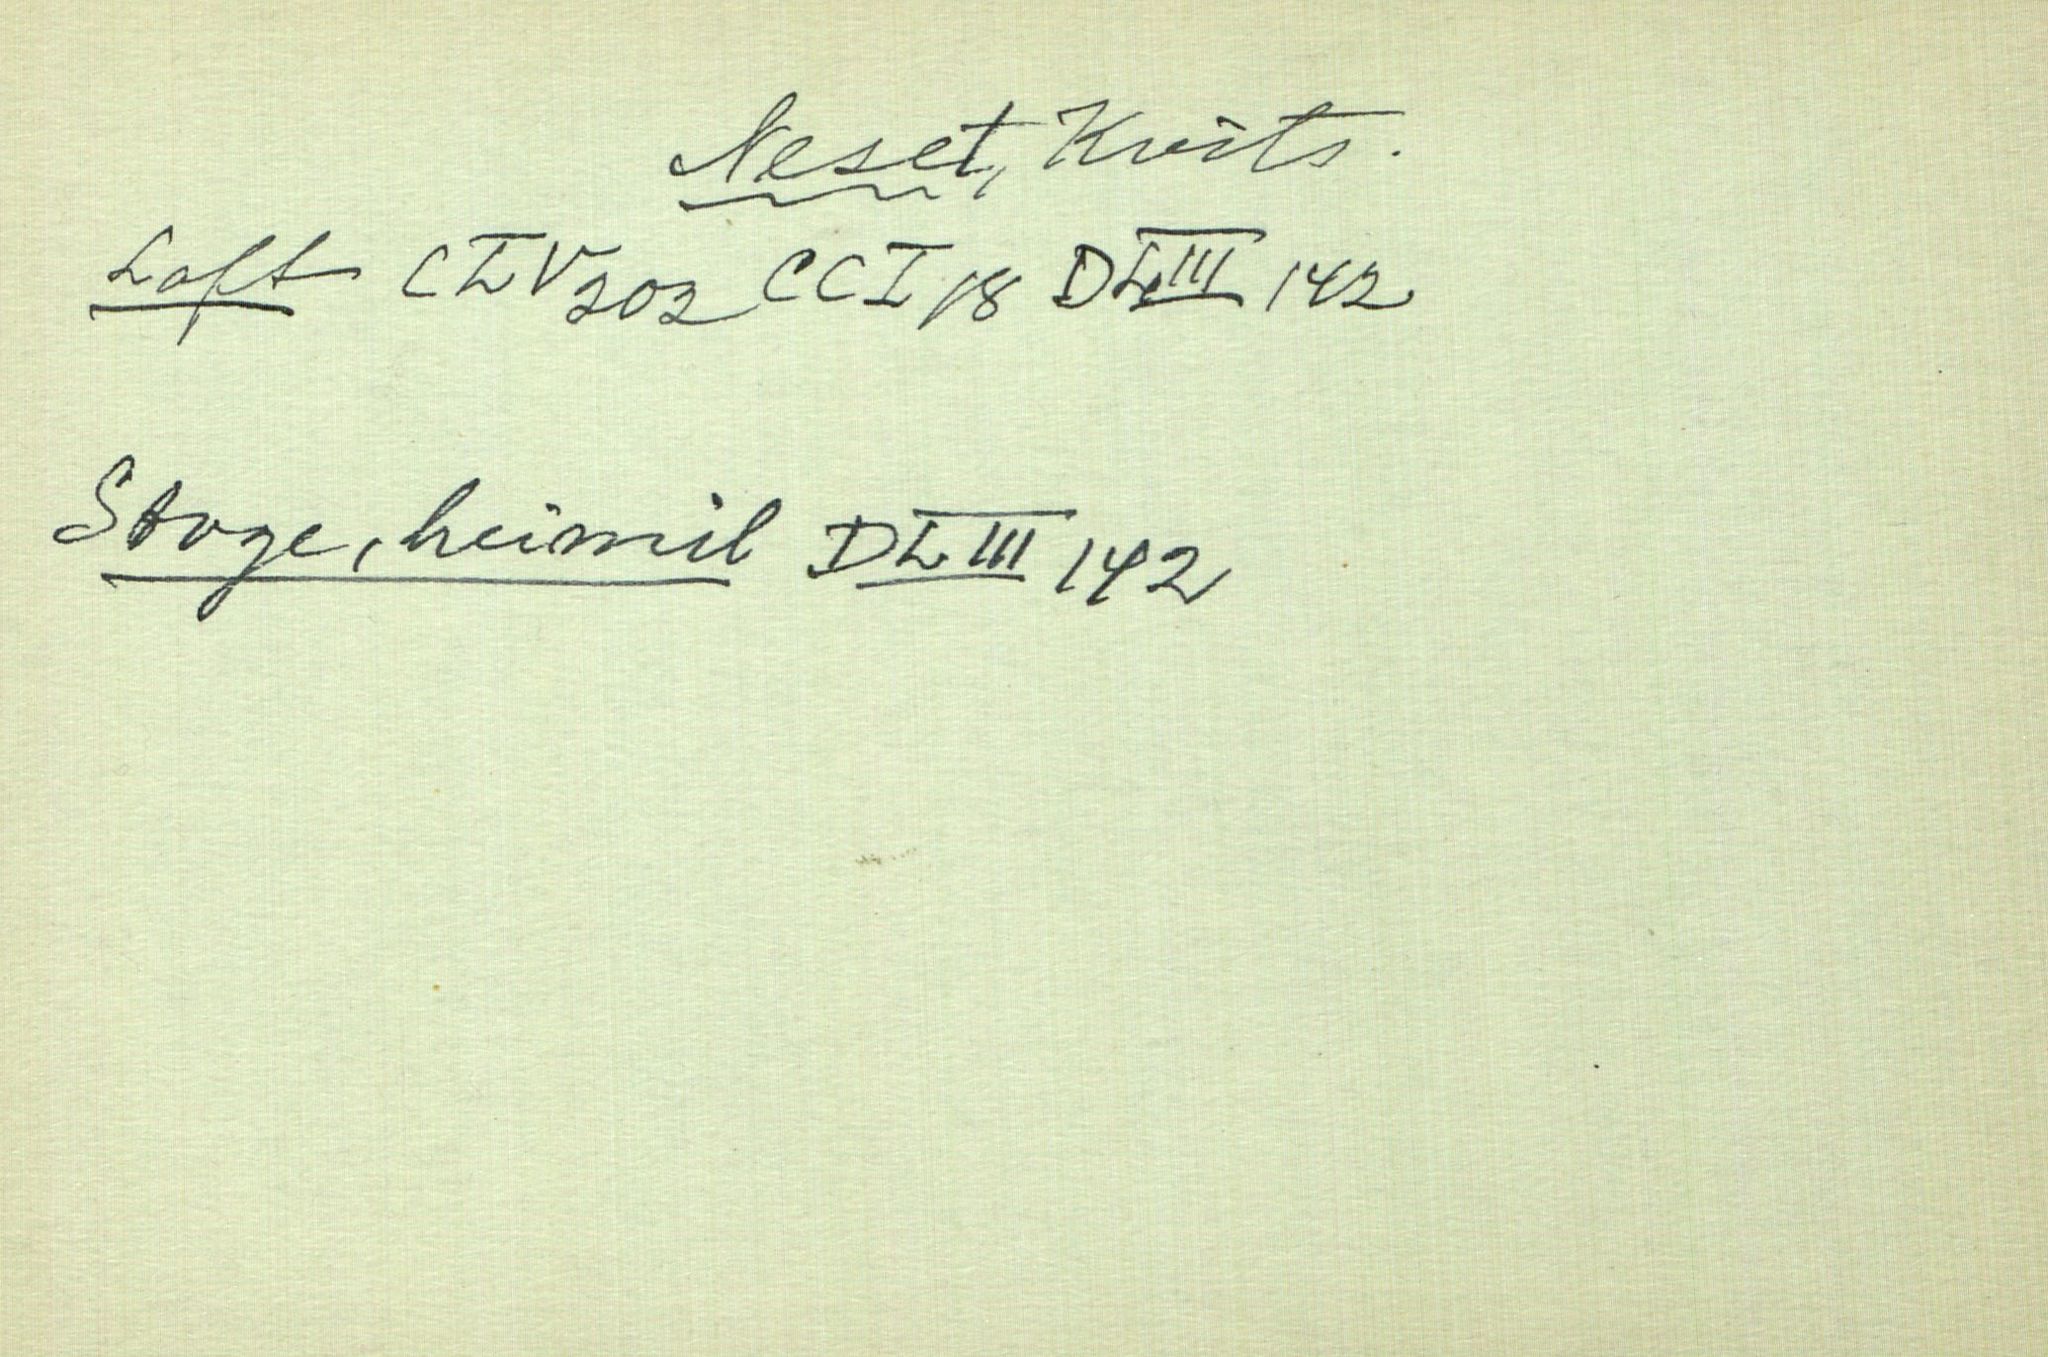 Neset, Kvits.
Loft CLV 202 CCI 18 DLIII 142
Stoge, heimil DLIII 142